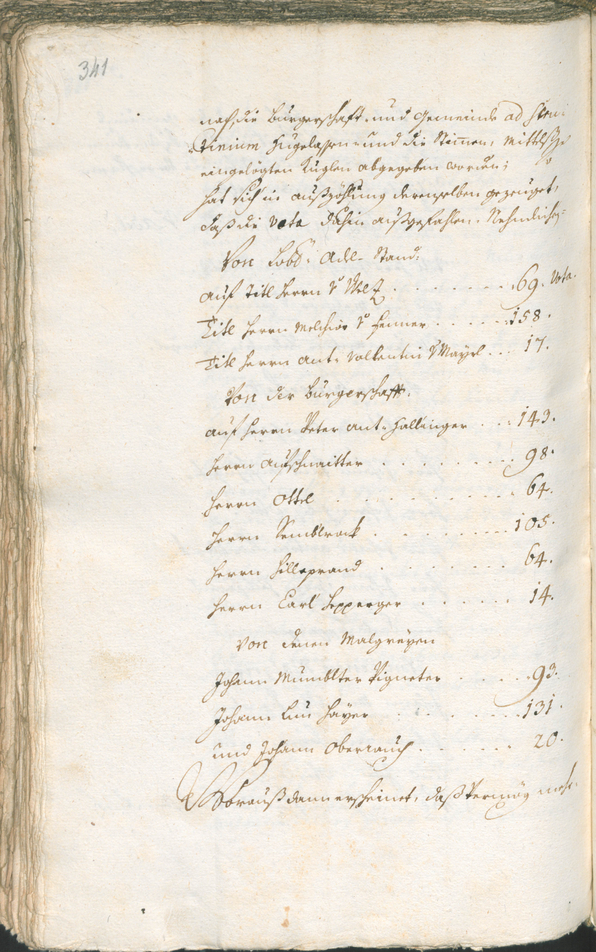 341
nach die Burgerschaft und Gemeinde ad scru¬
tinium zugelassen und die Stimen, mittelst
eingelegten Kuglen abgegeben worden;
hat sich in außzöhlung derenselben gezeuget,
daß die vota dahin außgefahlen. Nehmlichen:
Von Löbl: Adl. Stand:
auf Titl Herrn v Melz . . . . . . . 69. vota.
Titl Herrn Melchior v Fenner . . . . . 158.
Titl Herrn Ant: Vallentin v Mayrl . . . 17.
Von der Burgerschafft.
auf Herrn Peter Ant: Hallinger . . . 143.
Herrn Aufschnaitter . . . . . . . . 98.
Herrn Ottl . . . . . . . 64.
Herrn Semblrock . . . . . . . 105.
Herrn Hilleprand . . . . . . . 64.
Herrn Carl Sepperger . . . . . . 14.
Von denen Malgreyen
Johann Mumblter Pigneter . . . . . 93.
Johann Hayer . . . . . . . . 131.
und Johann Oberrauch . . . . . . 20.
Woraus dann erscheinet, daß vermög mehr¬